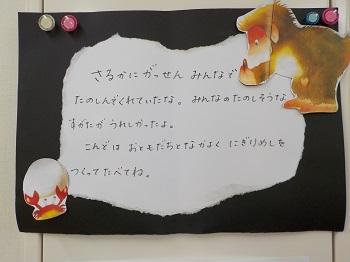 さるかに がっせん みんなで
たのしんでくれていたな。みんなのたのしそうな
すがたが うれしかったよ。
こんどは おともだちとなかよく にぎりめしを
つくってたべてね。